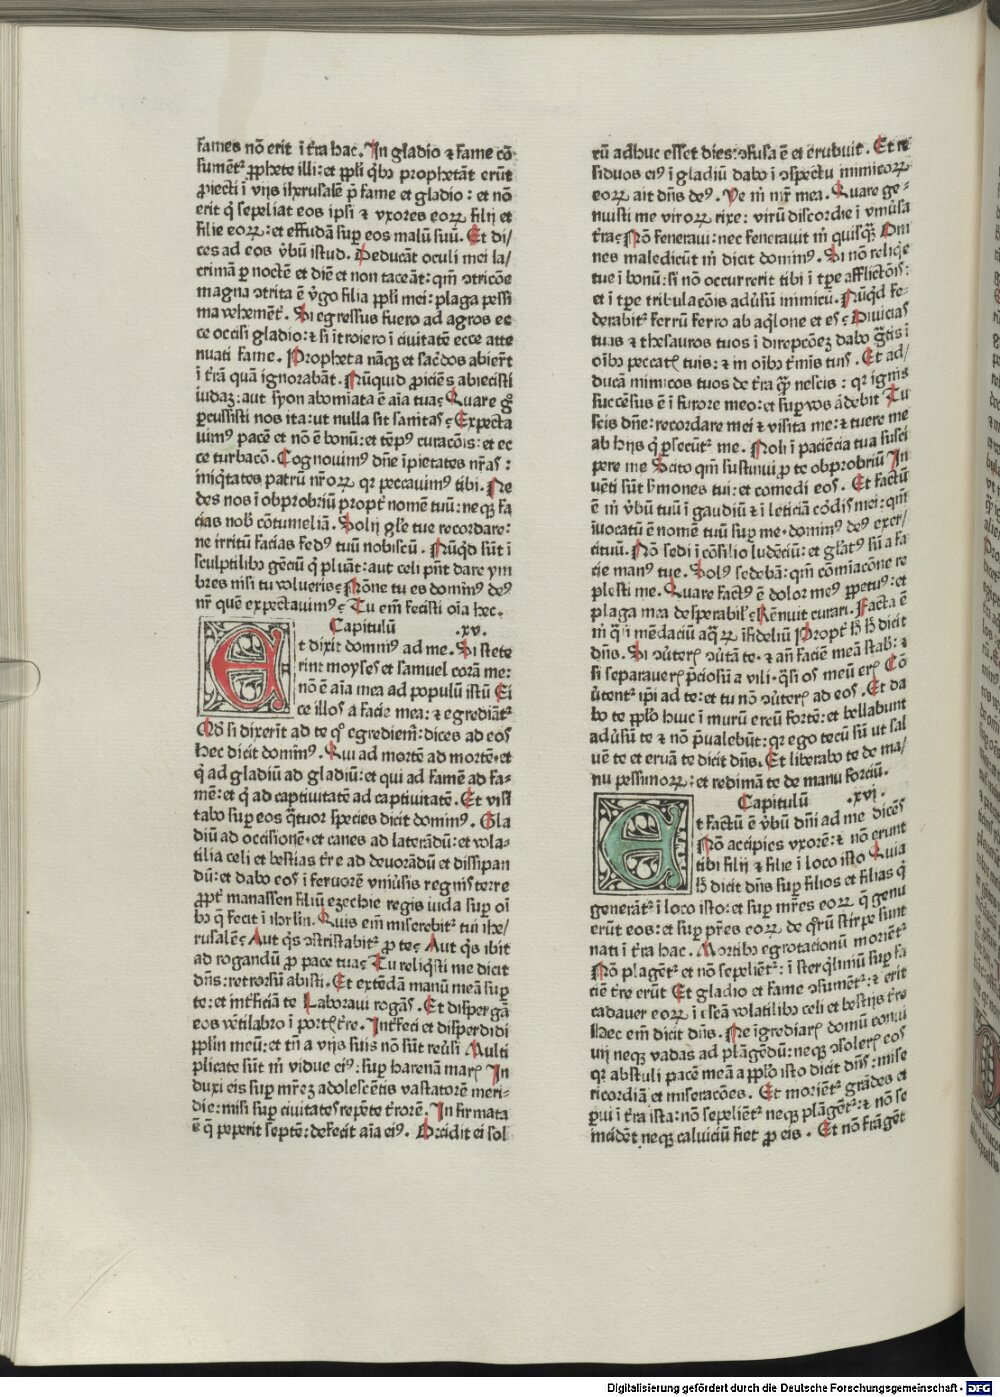 fames nō erit ī t̄ra hac. In gladio ⁊ fame cō
sumēt᷒ ꝓphete illi: et ppłi q̇bꝰ prophetāt erūt
ꝓiecti ī vijs iħerusalē p̄ fame et gladio: et nō
erit q̇ sepeliat eos ipsi ⁊ vxores eoꝝ filij et
filie eoꝝ: et effundā suꝑ eos malū suū. Et di/
ces ad eos v̄bū istud. Deducāt oculi mei la/
crimā ꝑ noctē et diē et non taceāt: qm̄ ꝯtricōe
magna ꝯtrita ē v̄go filia ppłi mei: plaga pessi
ma vehemēt. Si egressus fuero ad agros ec
ce occisi gladio: ⁊ si ītroiero ī ciuitatē ecce atte
nuati fame. Propheta nāqꝫ et sac̄dos abier̄t
ī t̄rā quā ignorabāt. Nūquid ꝓiciēs abiecisti
iudaꝫ: aut syon abomiata ē aīa tua? Quare g̊
ꝑcussisti nos ita: ut nulla sit sanitas? Expecta
uimꝰ pacē et nō ē bonū: et tēpꝰ curacōis: et ec
ce turbacō. Cognouimꝰ dn̄e īpietates nr̄as:
iniq̇tates patrū nr̄oꝝ qꝛ peccauimꝰ tibi. Ne
des nos ī obprobriū propt̄ nomē tuū: neqꝫ fa
cias nob̄ cōtumeliā. Solij gl̄e tue recordare:
ne irritū facias fedꝰ tuū nobiscū. Nūq̇d sūt ī
sculptilibꝰ gēciū q̇ pluāt: aut celi pn̄t dare ym
bres nisi tu volueris? Nōne tu es dominꝰ deꝰ
nr̄ quē expectauimꝰ? Tu em̄ fecisti oīa hec.
Capitulū .xv.
Et dixit dominꝰ ad me. Si stete
rint moyses et samuel corā me:
nō ē aīa mea ad populū istū Ei
ce illos a facie mea: ⁊ egrediāt᷒
Qd̓ si dixerīt ad te qͦ egrediem̄: dices ad eos
hec dicit dominꝰ. Qui ad mortē ad mortē: et
q̇ ad gladiū ad gladiū: et qui ad famē ad fa-
mē: et q̇ ad captiuitatē ad captiuitatē. Et visi
tabo suꝑ eos q̄tuor species dicit dominꝰ. Gla
diū ad occisionē: et canes ad laterādū: et vola-
tilia celi et bestias t̄re ad deuorādū et dissipan
dū: et dabo eos ī feruorē vniūsis regnis terre
ꝓpt̄ manassen filiū ezechie regis iuda suꝑ oī
bꝰ q̄ fecit ī ihrl̄m. Quis em̄ miserebit᷒ tui ihe/
rusalē? Aut q̇s ꝯtristabit᷒ ꝓ te? Aut q̇s ibit
ad rogandū ꝓ pace tua? Tu reliq̇sti me dicit
dn̄s: retrorsū abisti. Et extēdā manū meā suꝑ
te: et int̄ficiā te Laboraui rogās. Et dispergā
eos vētilabro ī port̄ t̄re. Int̄feci et disperdidi
ppłm meū: et tn̄ a vijs suis nō sūt reūsi Multi
plicate sūt m̄ vidue eiꝰ: suꝑ harenā mar̄ In
duxi eis suꝑ mr̄eꝫ adolescētis vastatorē meri-
die: misi suꝑ ciuitates repēte t̄rorē. Infirmata
ē q̄ peperit septē: defecit aīa eiꝰ. Occidit ei sol
rū adhuc esset dies: ꝯfusa ē et erubuit. Et re
siduos eiꝰ ī gladiū dabo ī ꝯspectu inimicoꝝ
eoꝝ ait dn̄s deꝰ. Ve m̄ mr̄ mea. Quare ge-
nuisti me viroꝝ rixe: virū discordie ī vniūsa
t̄ra? Nō feneraui: nec fenerauit m̄ quisq̄ꝫ Om
nes maledicūt m̄ dicit dominꝰ. Si nō reliq̇e
tue ī bonū: si nō occurrerit tibi ī tꝑe afflictōis:
et ī tꝑe tribulacōis adūsū inimicū. Nūq̇d fe-
derabit᷒ ferrū ferro ab aq̇lone et es? Diuicias
tuas ⁊ thesauros tuos ī direpcōeꝫ dabo gͣtis ī
oībꝰ peccat̄ tuis: ⁊ in oībꝰ t̄mīs tuis. Et ad/
ducā inimicos tuos de t̄ra q̄ꝫ nescis: qꝛ ignis
succēsus ē ī furore meo: et suꝑ vos ādebit Tu
scis dn̄e: recordare mei ⁊ visita me: ⁊ tuere me
ab hijs q̇ ꝑsecūt᷒ me. Noli ī paciēcia tua susci
pere me Scito qm̄ sustinui ꝓ te obprobriū In
vēti sūt s̄mones tui: et comedi eos. Et factū
ē m̄ v̄bū tuū ī gaudiū ⁊ ī leticiā cōdis mei: qm̄
īuocatū ē nomē tuū suꝑ me. dominꝰ deꝰ exer/
cituū. Nō sedi ī cōsilio ludēciū: et gl̄atꝰ sū a fa
cie manꝰ tue. Solꝰ sedebā: qm̄ cōmīacōne re
plesti me. Quare factꝰ ē dolor meꝰ ꝑpetuꝰ: et
plaga mea desperabil̓? Rēnuit curari. Facta ē
m̄ q̄si mēdaciū aq̄ꝝ īfideliū Propt̄ h̓ h̓ dicit
dn̄s. Si ꝯūter̄ ꝯūtā te. ⁊ an̄ faciē meā stab̓: ⁊
si separauer̄ p̄ciosū a vili. q̄si os meū er̄ Cō
ūtent᷒ ip̄i ad te: et tu nō ꝯūter̄ ad eos. Et da
bo te ppło huic ī murū ereū fortē: et bellabunt
adūsū te ⁊ nō p̄ualebūt: qꝛ ego tecū sū ut sal
uē te et eruā te dicit dn̄s. Et liberabo te de ma/
nu pessimoꝝ: et redimā te de manu forciū.
Capitulū .xvi.
Et factū ē v̄bū dn̄i ad me dicēs
Nō accipies vxorē: ⁊ nō erunt
tibi filij ⁊ filie ī loco isto Quia
h̓ dicit dn̄s suꝑ filios et filias q̇
generāt᷒ ī loco isto: et suꝑ mr̄es eoꝝ q̄ genu
erūt eos: et suꝑ pr̄es eoꝝ de qͦrū stirpe sunt
nati ī t̄ra hac. Mortibꝰ egrotacionū moriēt᷒
Nō plagēt᷒ et nō sepeliēt᷒: ī sterq̇liniū suꝑ fa
ciē t̄re erūt Et gladio et fame ꝯsumēt᷒: ⁊ erit
cadauer eoꝝ ī escā volatilibꝰ celi et bestijs t̄re
Hec em̄ dicit dn̄s. Ne īgrediar̄ domū conui
uij neqꝫ vadas ad plāgēdū: neqꝫ ꝯsoler̄ eos
qꝛ abstuli pacē meā a ppło isto dicit dn̄s: mise
ricordiā et miseracōes. Et moriēt᷒ grādes et
ꝑui ī t̄ra ista: nō sepeliēt᷒ neqꝫ plāgēt᷒: ⁊ nō se
incidēt neqꝫ caluiciū fiet ꝓ eis. Et nō frāgēt
Digitalisierung gefördert durch die Deutsche Forschungsgemeinschaft - DFG